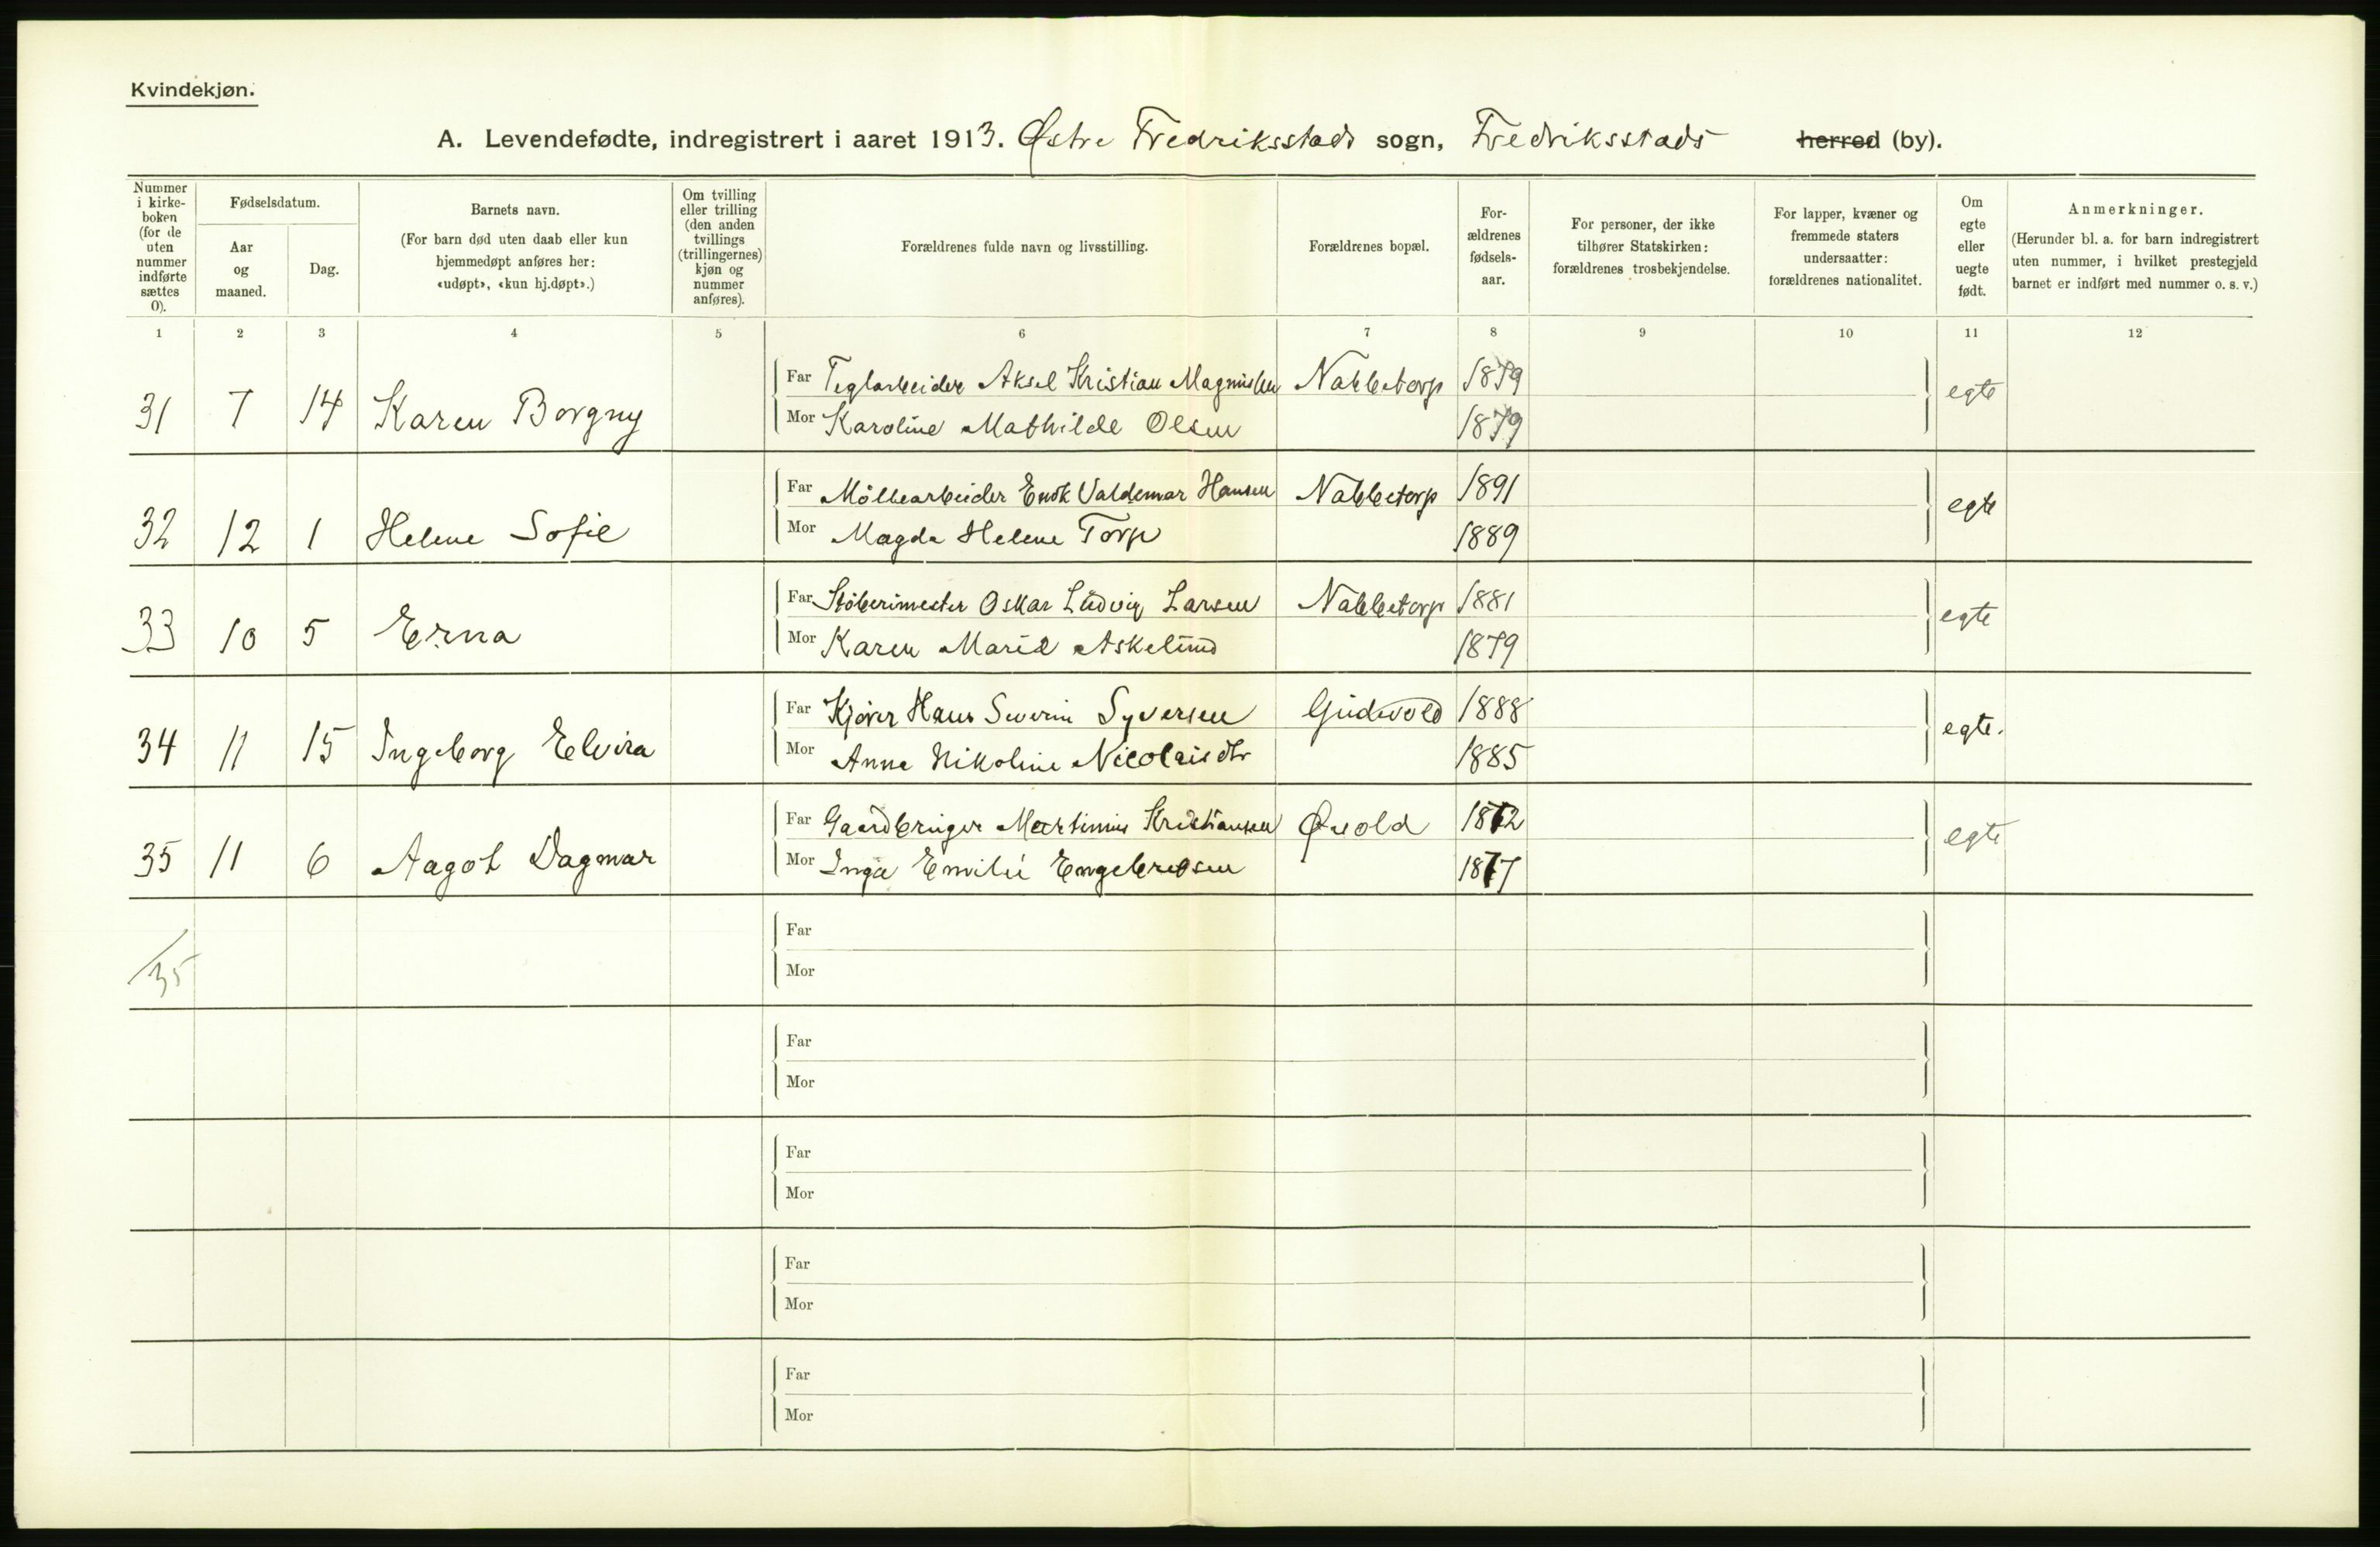 Kvindekjøn.
A. Levendefødte, indregistrert i aaret 1913. Østre Fredriksstads sogn, Fredriksstads herred (by).
Nummer i kirke-boken (for de uten nummer indførte sættes 0).
Fødselsdatum.
Aar og maaned.
Dag.
Barnets navn.
(For barn død uten daab eller kun hjemmedøpt anføres her: «udøpt», «kun hj.døpt».)
Om tvilling eller trilling (den anden tvillings (trillingernes) kjøn og nummer anføres).
Forældrenes fulde navn og livsstilling.
Forældrenes bopæl.
For-ældrenes fødsels-aar.
For personer, der ikke tilhører Statskirken: forældrenes trosbekjendelse.
For lapper, kvæner og fremmede staters undersaatter: forældrenes nationalitet.
Om egte eller uegte født.
Anmerkninger.
(Herunder bl. a. for barn indregistrert uten nummer, i hvilket prestegjeld barnet er indført med nummer o. s. v.)
1 2 3 4 5 6 7 8 9 10 11 12
31 7 14 Karen Borgny
Far Teglarbeider Aksel Kristian Magnussen Nabbetorp 1879 egte
Mor Karoline Mathilde Olsen 1879
32 12 1 Helene Sofie
Far Møllearbeider Enok Valdemar Hansen Nabbetorp 1891 egte
Mor Magda Helene Torp 1889
33 10 5 Erna
Far Støberimester Oskar Ludvig Larsen Nabbetorp 1881 egte
Mor Karen Marie Askelund 1879
34 11 15 Ingeborg Elvira
Far Kjører Hans Severin Syversen Gudevold 1888 egte.
Mor Anna Nikoline Nicolaisdtr 1885
35 11 6 Aagot Dagmar
Far Gaardbruger Martinius Kristiansen Øvold 1872 egte
Mor Inga Emilie Engebretsen 1877
35
Far
Mor
Far
Mor
Far
Mor
Far
Mor
Far
Mor